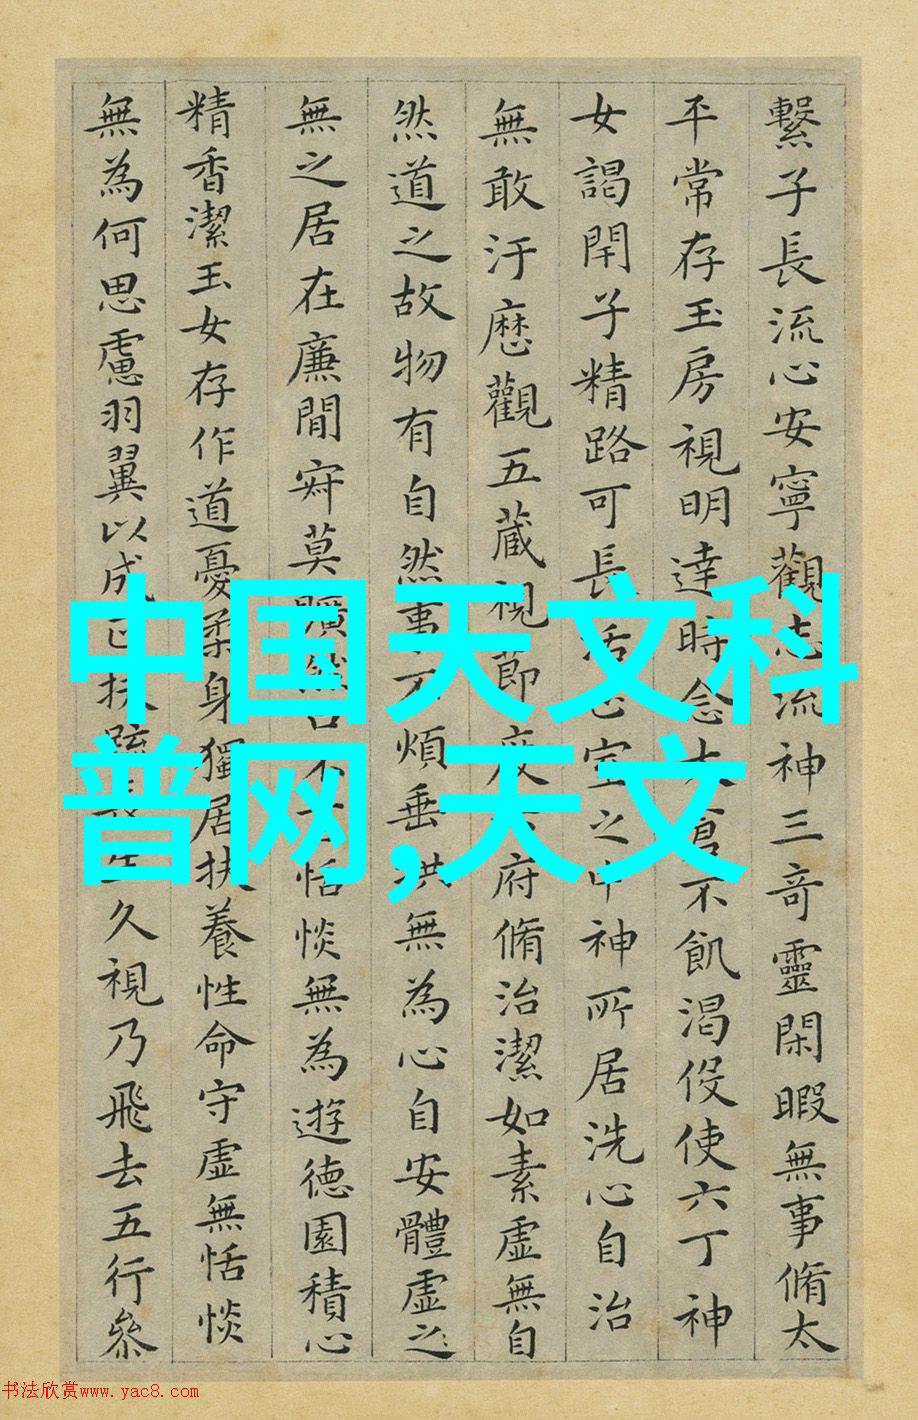 繫子長流心安寧觀志流神三奇靈閑暇無事脩太
平常存玉房視明達時念大倉不飢渴役使六丁神
女謁閇子精路可長活正室之中神所居洗心自治
無敢汙歷觀五藏視節度六府脩治潔如素虛無自
然道之故物有自然事不煩垂拱無為心自安體虛之
無之居在廉間寂莫曠然口不言恬惔無為遊德園積心
精香潔玉女存作道憂柔身獨居扶養性命守虛無恬惔
無為何思慮羽翼以成正扶疏長生久視乃飛去五行參
中国天文科
普网,天文
书法欣赏www.yac8.com